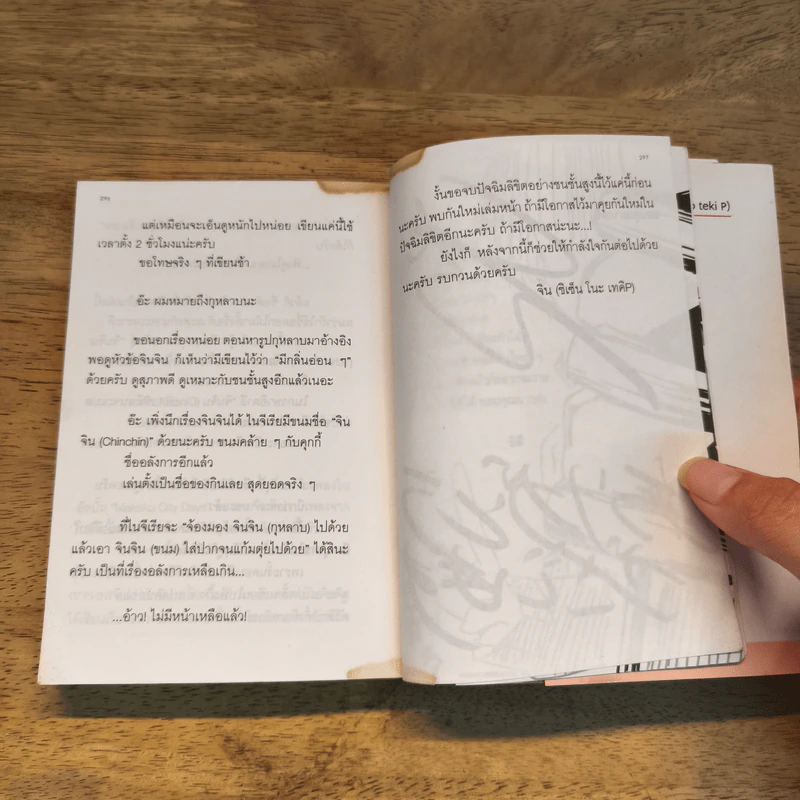 296
แต่เหมือนจะเอ็นดูหนักไปหน่อย เขียนแค่นี้ใช้
เวลาตั้ง 2 ชั่วโมงแน่ะครับ
ขอโทษจริง ๆ ที่เขียนช้า
อ๊ะ ผมหมายถึงกุหลาบนะ
ขอนอกเรื่องหน่อย ตอนหารูปกุหลาบมาอ้างอิง
พอดูหัวข้อจินจิน ก็เห็นว่ามีเขียนไว้ว่า “มีกลิ่นอ่อน ๆ”
ด้วยครับ ดูสุภาพดี ดูเหมาะกับชนชั้นสูงอีกแล้วเนอะ
อ๊ะ เพิ่งนึกเรื่องจินจินได้ ในจีเรียมีขนมชื่อ “จิน
จิน (Chinchin)” ด้วยนะครับ ขนมคล้าย ๆ กับคุกกี้
ชื่ออลังการอีกแล้ว
เล่นตั้งเป็นชื่อของกินเลย สุดยอดจริง ๆ
ที่ไนจีเรียจะ “จ้องมอง จินจิน (กุหลาบ) ไปด้วย
แล้วเอา จินจิน (ขนม) ใส่ปากจนแก้มตุ่ยไปด้วย” ได้สินะ
ครับ เป็นที่เรื่องอลังการเหลือเกิน...
...อ้าว! ไม่มีหน้าเหลือแล้ว!
297
งั้นขอจบปัจฉิมลิขิตอย่างชนชั้นสูงนี้ไว้แค่นี้ก่อน
นะครับ พบกันใหม่เล่มหน้า ถ้ามีโอกาสไว้มาคุยกันใหม่ใน
ปัจฉิมลิขิตอีกนะครับ ถ้ามีโอกาสน่ะนะ...!
ยังไงก็ หลังจากนี้ก็ช่วยให้กำลังใจกันต่อไปด้วย
นะครับ รบกวนด้วยครับ
จิน (ชิเซ็น โนะ เทคิP)
teki P)